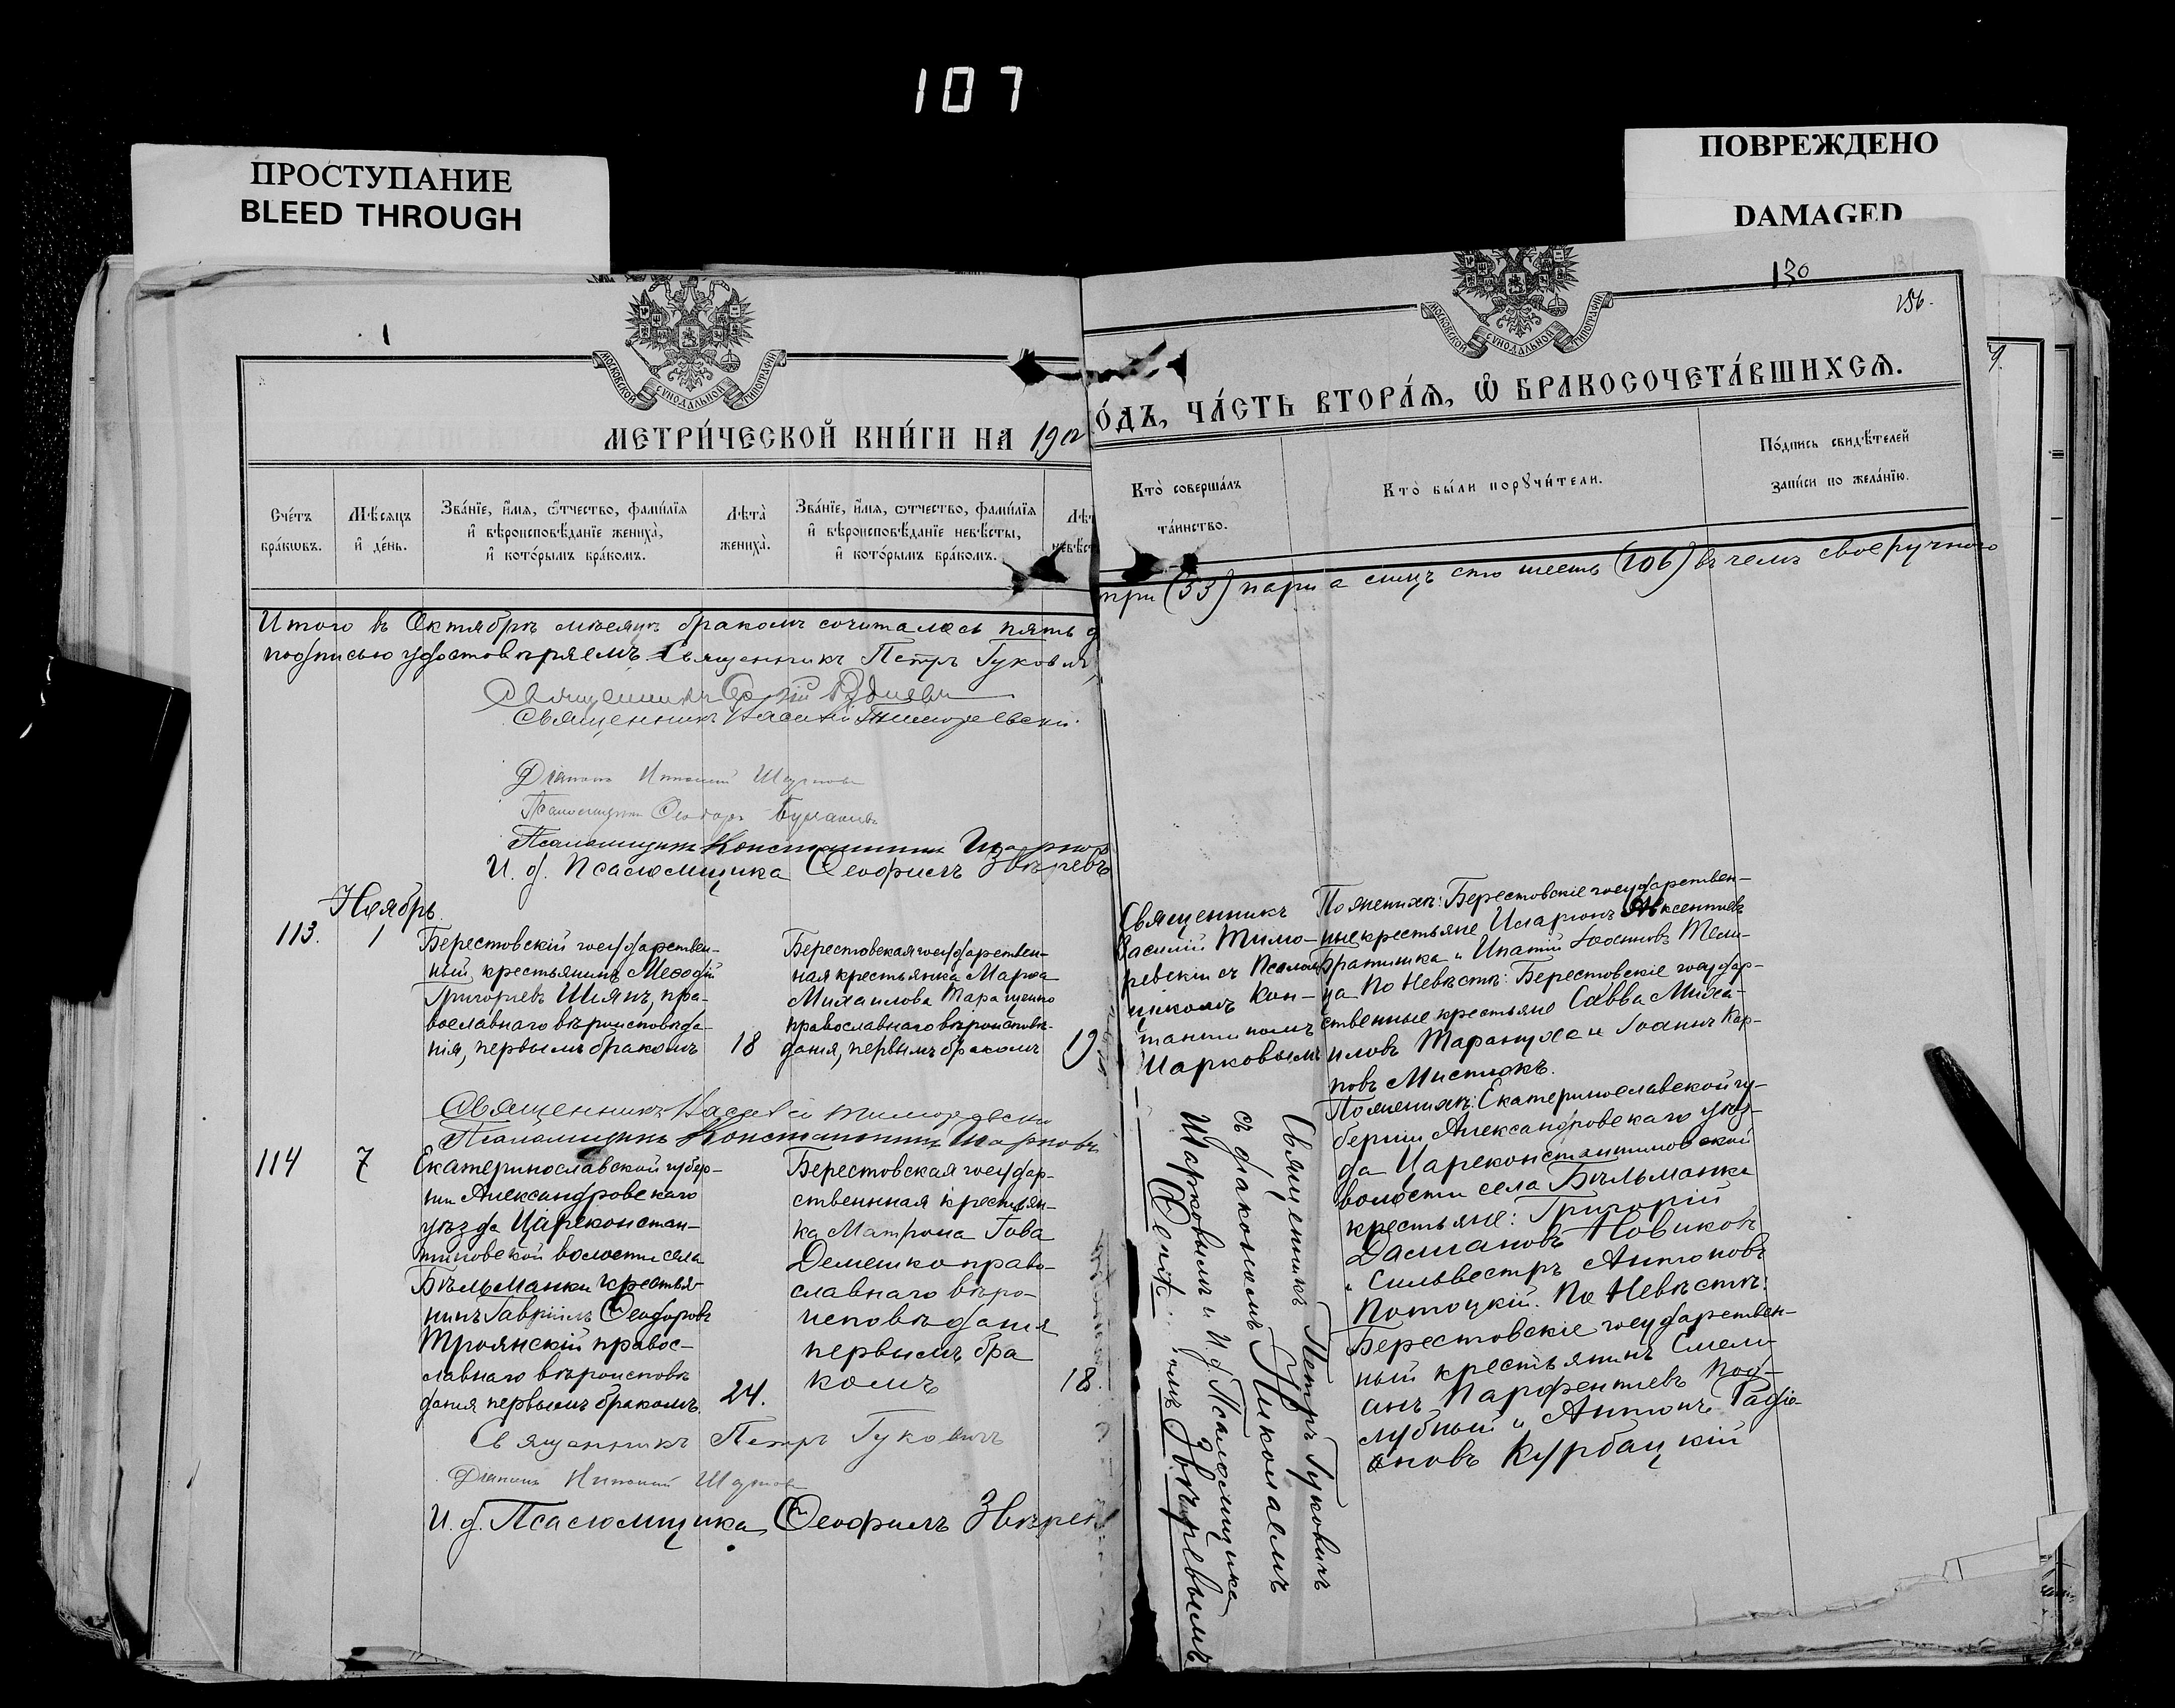 107
ПРОСТУПАНИЕ
BLEED THROUGH
ПОВРЕЖДЕНО
DAMAGED
1
130
МОСКОВСКОЙ СУНОДАЛЬНОЙ ТИПОГРАФІИ
МОСКОВСКОЙ СУНОДАЛЬНОЙ ТИПОГРАФІИ
МЕТРИ́ЧЕСКОЙ КНИ́ГИ НА 190
О́ДЪ, ЧА́СТЬ ВТОРА́Я, Ѡ БРАКОСОЧЕТА́ВШИХСЯ.
Сче́тъ бра́кѡвъ.
Мѣ́сяцъ и҆ де́нь.
Зва́нїе, и҆́мя, ѻ҆́тчество, фами́лїя и҆ вѣроисповѣ́данїе жениха̀, и҆ кото́рымъ бра́комъ.
Лѣта̀ жениха̀.
Зва́нїе, и҆́мя, ѻ҆́тчество, фами́лїя и҆ вѣроисповѣ́данїе невѣ́сты, и҆ кото́рымъ бра́комъ.
Лѣт невѣст
Кто̀ соверша́лъ та́инство.
Кто̀ бы́ли порꙋчи́тели.
По́дпись свидѣ́телей за́писи по жела́нїю.
Итого въ Октябрѣ мѣсяцѣ бракомъ сочиталось пять д
три (53) пары а лицъ сто шесть (106) въ чемъ своеручною
подписью удостовѣряемъ. Священникъ Петръ Гуковичъ
Священникъ
Священникъ Василій Тиморевскій
Діаконъ Николай Шарковъ
Псаломщикъ Ѳеодоръ
Псаломщикъ Константинъ Шарковъ
И. д. Псаломщика Ѳеофилъ Звѣревъ
Ноябрь.
113.
1
Берестовскій государствен-
ный крестьянинъ Меѳодій
Григорьевъ Шиянъ, пра-
вославнаго вѣроисповѣда-
нія, первымъ бракомъ
18
Берестовская государствен-
ная крестьянка Марѳа
Михаилова Таращенко
православнаго вѣроисповѣ-
данія, первымъ бракомъ
19
Священникъ
Василій Тимо-
ревскій съ Псалом-
щикомъ Кон-
стантиномъ
Шарковымъ
По женихѣ: Берестовскіе государствен-
ные крестьяне Иларіонъ Авксентіевъ
Братишка и Ипатій Іоанновъ Тели-
ца По Невѣстѣ: Берестовскіе государ-
ственные крестьяне Савва Миха-
иловъ Тарануха и Іоаннъ Кар-
повъ Мистюкъ.
Священникъ Василій Тиморевскій
Псаломщикъ Константинъ Шарковъ
114
7
Екатеринославской губер-
ніи Александровскаго
уѣзда Цареконстан-
тиновской волости села
Бѣльманки крестья-
нинъ Гавріилъ Ѳеодоровъ
Троянскій правос-
лавнаго вѣроисповѣ
данія первымъ бракомъ.
24.
Берестовская государ-
ственная крестьян-
ка Матрона
Демешко право-
славнаго вѣро-
исповѣданія
первымъ бра
комъ
18.
Священникъ Петръ Гуковичъ
съ діакономъ Николаемъ
Шарковымъ и И. д. Псаломщика
Звѣревымъ
По женихѣ: Екатеринославской гу-
берніи Александровскаго уѣз-
да Цареконстантиновской
волости села Бѣльманка
крестьяне: Григорій
Даміановъ Новиковъ
и Сильвестръ Антоновъ
Потоцкій. По Невѣстѣ:
Берестовскіе государствен-
ный крестьянинъ Емели-
анъ Парфентіевъ Под-
лубный и Антонъ Радіо-
новъ Курбацкій
Священникъ Петръ Гуковичъ
Діаконъ Николай Шарков
И. д. Псаломщика Ѳеофилъ Звѣрев